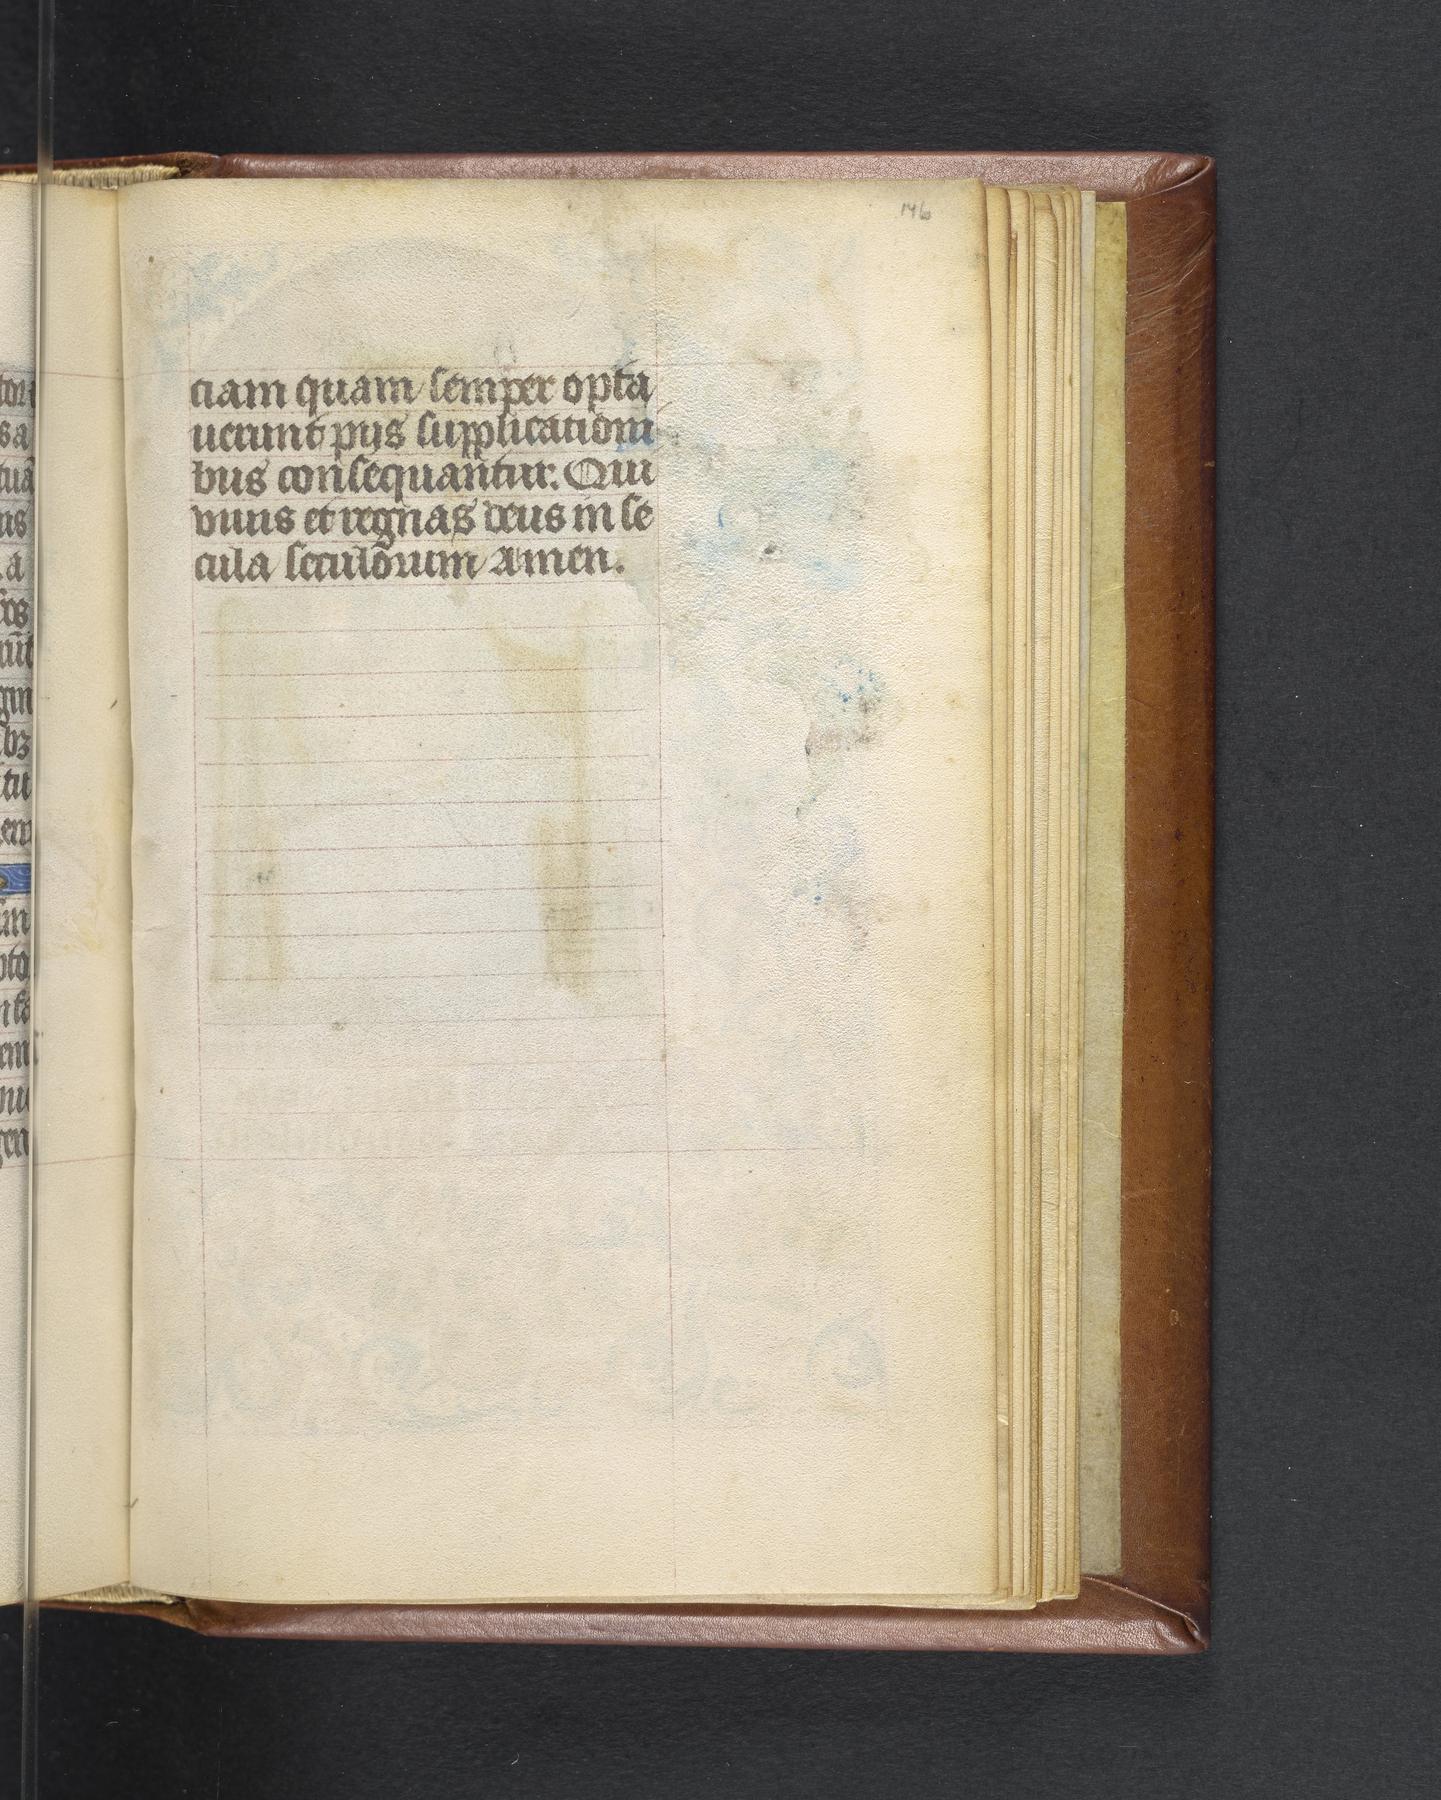 146
ciam quam semper opta
uerunt pijs supplicationi
bus consequantur. Qui
viuis et regnas deus in se
cula seculorum Amen.